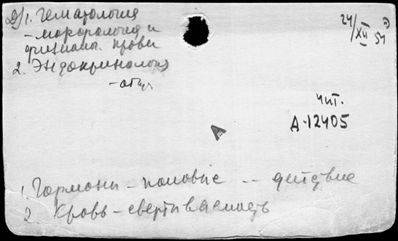 1. Гематология
- морфология и
физиол. крови
2. Эндокринология
- общ.
24/XII 51
Чит.
А-12405
1. Гормоны - половые -- действие
2. Кровь - свертываемость